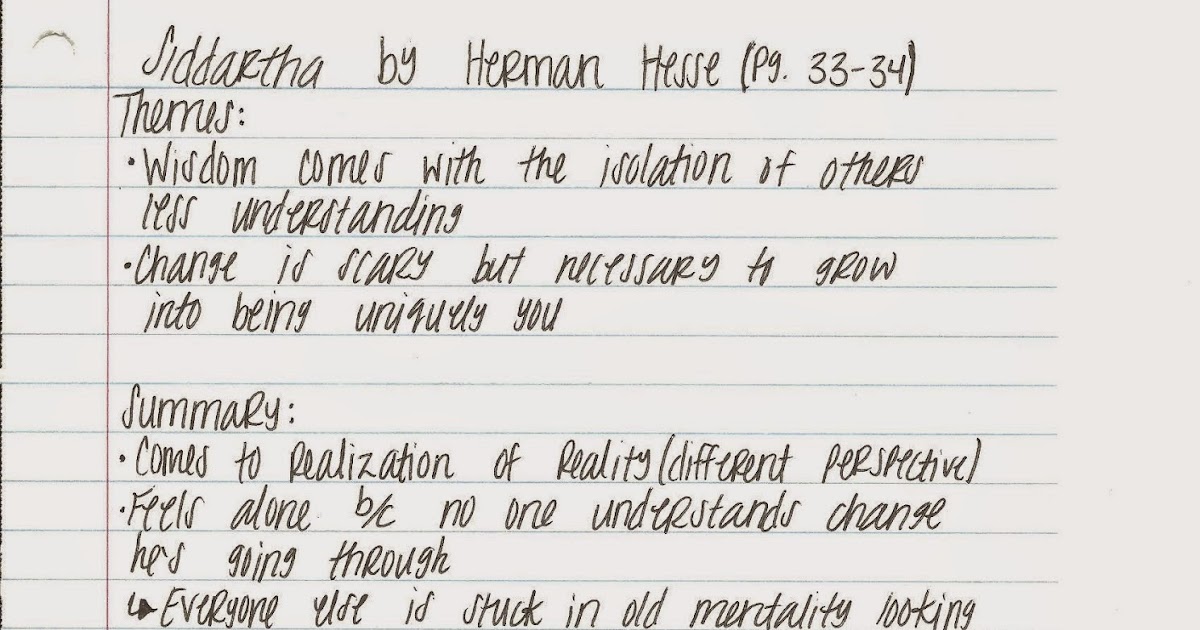 Siddartha by Herman Hesse (pg. 33-34)
Themes:
• Wisdom comes with the isolation of others
less understanding
• Change is scary but necessary to grow
into being uniquely you
Summary:
• Comes to Realization of Reality (different perspective)
• Feels alone b/c no one understands change
he's going through
↳ Everyone else is stuck in old mentality looking